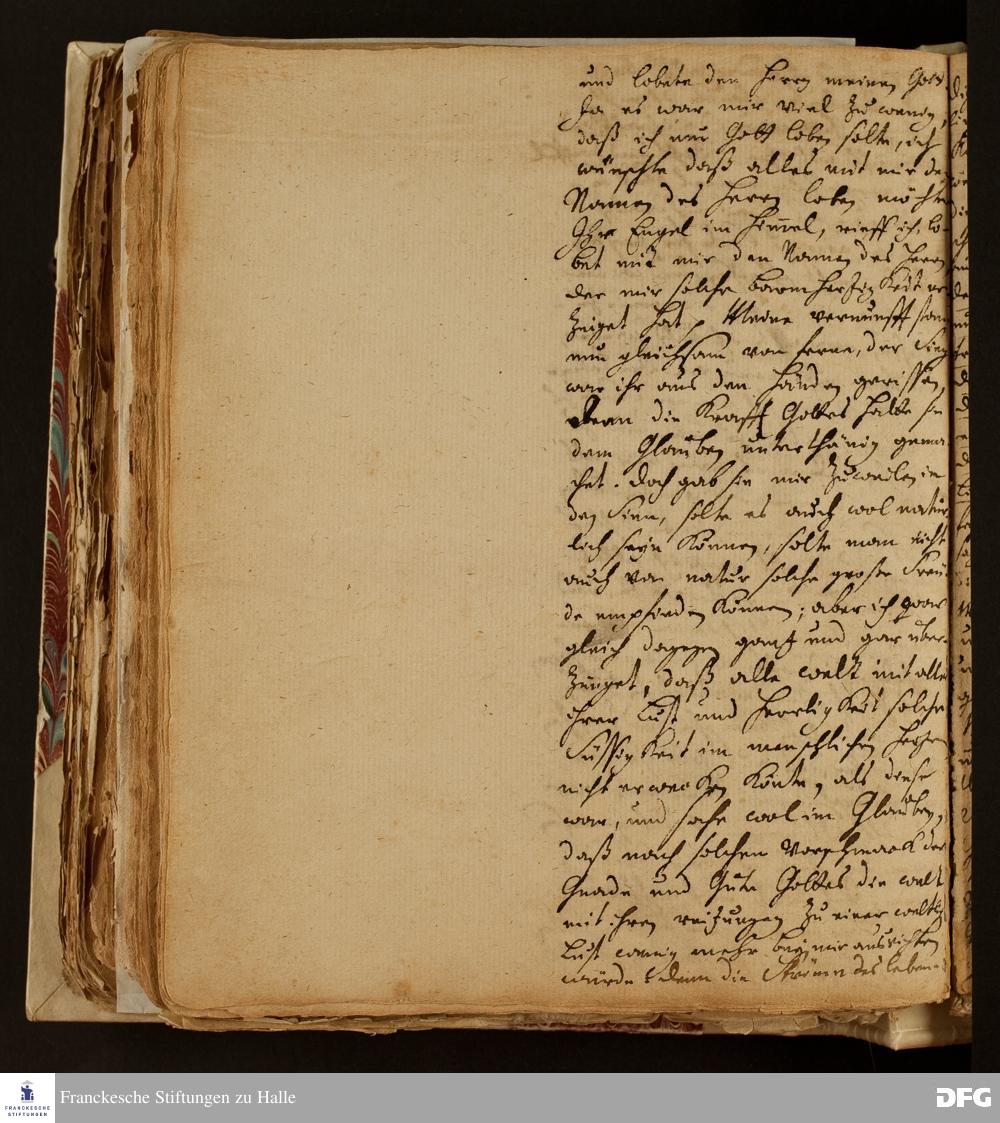 und lobete den Herrn meinen Gott
Ja es war mir viel zu wenig,
daß ich nur Gott loben solte, ich
wünschte daß alles mit mir de
Namen des Herrn loben möchte
Ihr Engel im Himmel, rieff ich, lo-
bet mit mir den Namen des Herrn
der mir solche barmhertzigkeit er
zeiget hat, Meine vernunfft stan
nun gleichsam von ferne, der Sieg
war ihr aus den Händen gerissen,
denn die Krafft Gottes hatte sie
dem Glauben unterthänig gema
chet. doch gab sie mir zuweilen in
den Sinn, solte es auch wol natür
lich seyn können, solte man nicht
auch von natur solche große Freu
de empfinden können; aber ich war
gleich dagegen gantz und gar über-
zeuget, daß alle welt mit aller
ihrer Lust und Herrligkeit solche
Süssigkeit im menschlichen Hertzen
nicht erwecken könte, als diese
war, und sahe wol im Glauben,
daß nach solchen Vorschmack der
Gnade und Güte Gottes die welt
mit ihren reitzungen zu einer weltl
Lust wenig mehr bey mir ausrichten
würde denn die Ströme des lebend
Franckesche Stiftungen zu Halle
FRANCKESCHE
STIFTUNGEN
DFG